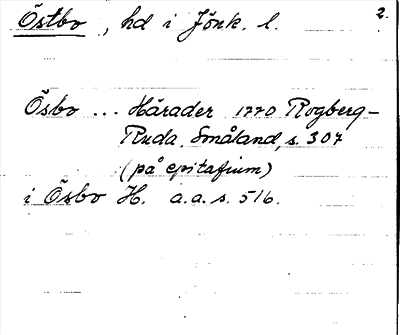 Östbo, hd i Jönk. l. 2.
Ösbo ... Härader 1770 Rogberg-
Ruda, Småland, s. 307
(på epitafium)
i Ösbo H. a.a. s. 516.